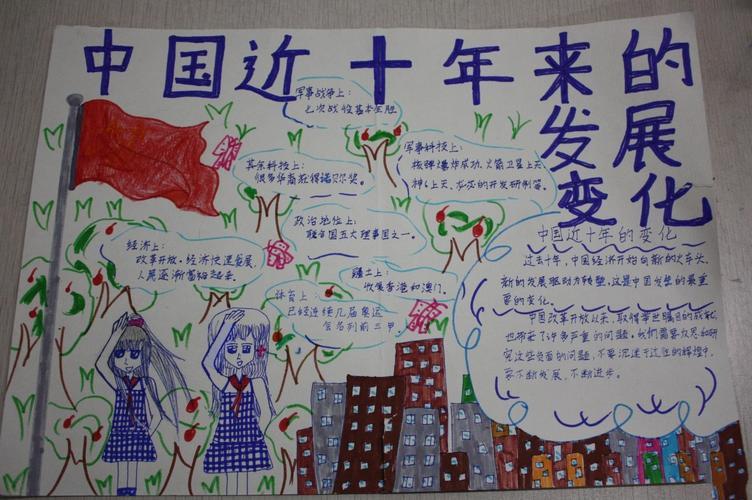 中国近十年来的
发展
变化
军事战争上：
七次战役基本全胜
其余科技上：
很多华裔获得诺贝尔奖。
军事科技上：
核弹爆炸成功，火箭卫星上天
神6上天、龙芯的开发研制等。
政治地位上：
联合国五大理事国之一。
经济上：
改革开放，经济快速发展，
人民逐渐富裕起来。
疆土上：
收复香港和澳门。
体育上：
已经连续几届奥运
会名列前三甲。
中国近十年的变化
过去十年，中国经济开始向新的火车头、
新的发展驱动力转型，这是中国发生的最重
要的变化。
中国改革开放以来，取得举世瞩目的成就，
也带来了许多严重的问题。我们需要反思和研
究这些负面的问题，不要沉迷于过往的辉煌中，
要不断发展，不断进步。